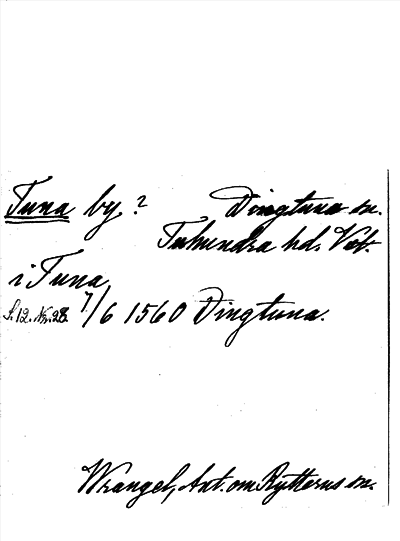 Tuna by? Dingtuna sn.
Tuhundra hd. Vstm.
i Tuna
S. 12. Nr. 28. 7/6 1560 Dingtuna.
Wrangel, Ant. om Rytterns sn.